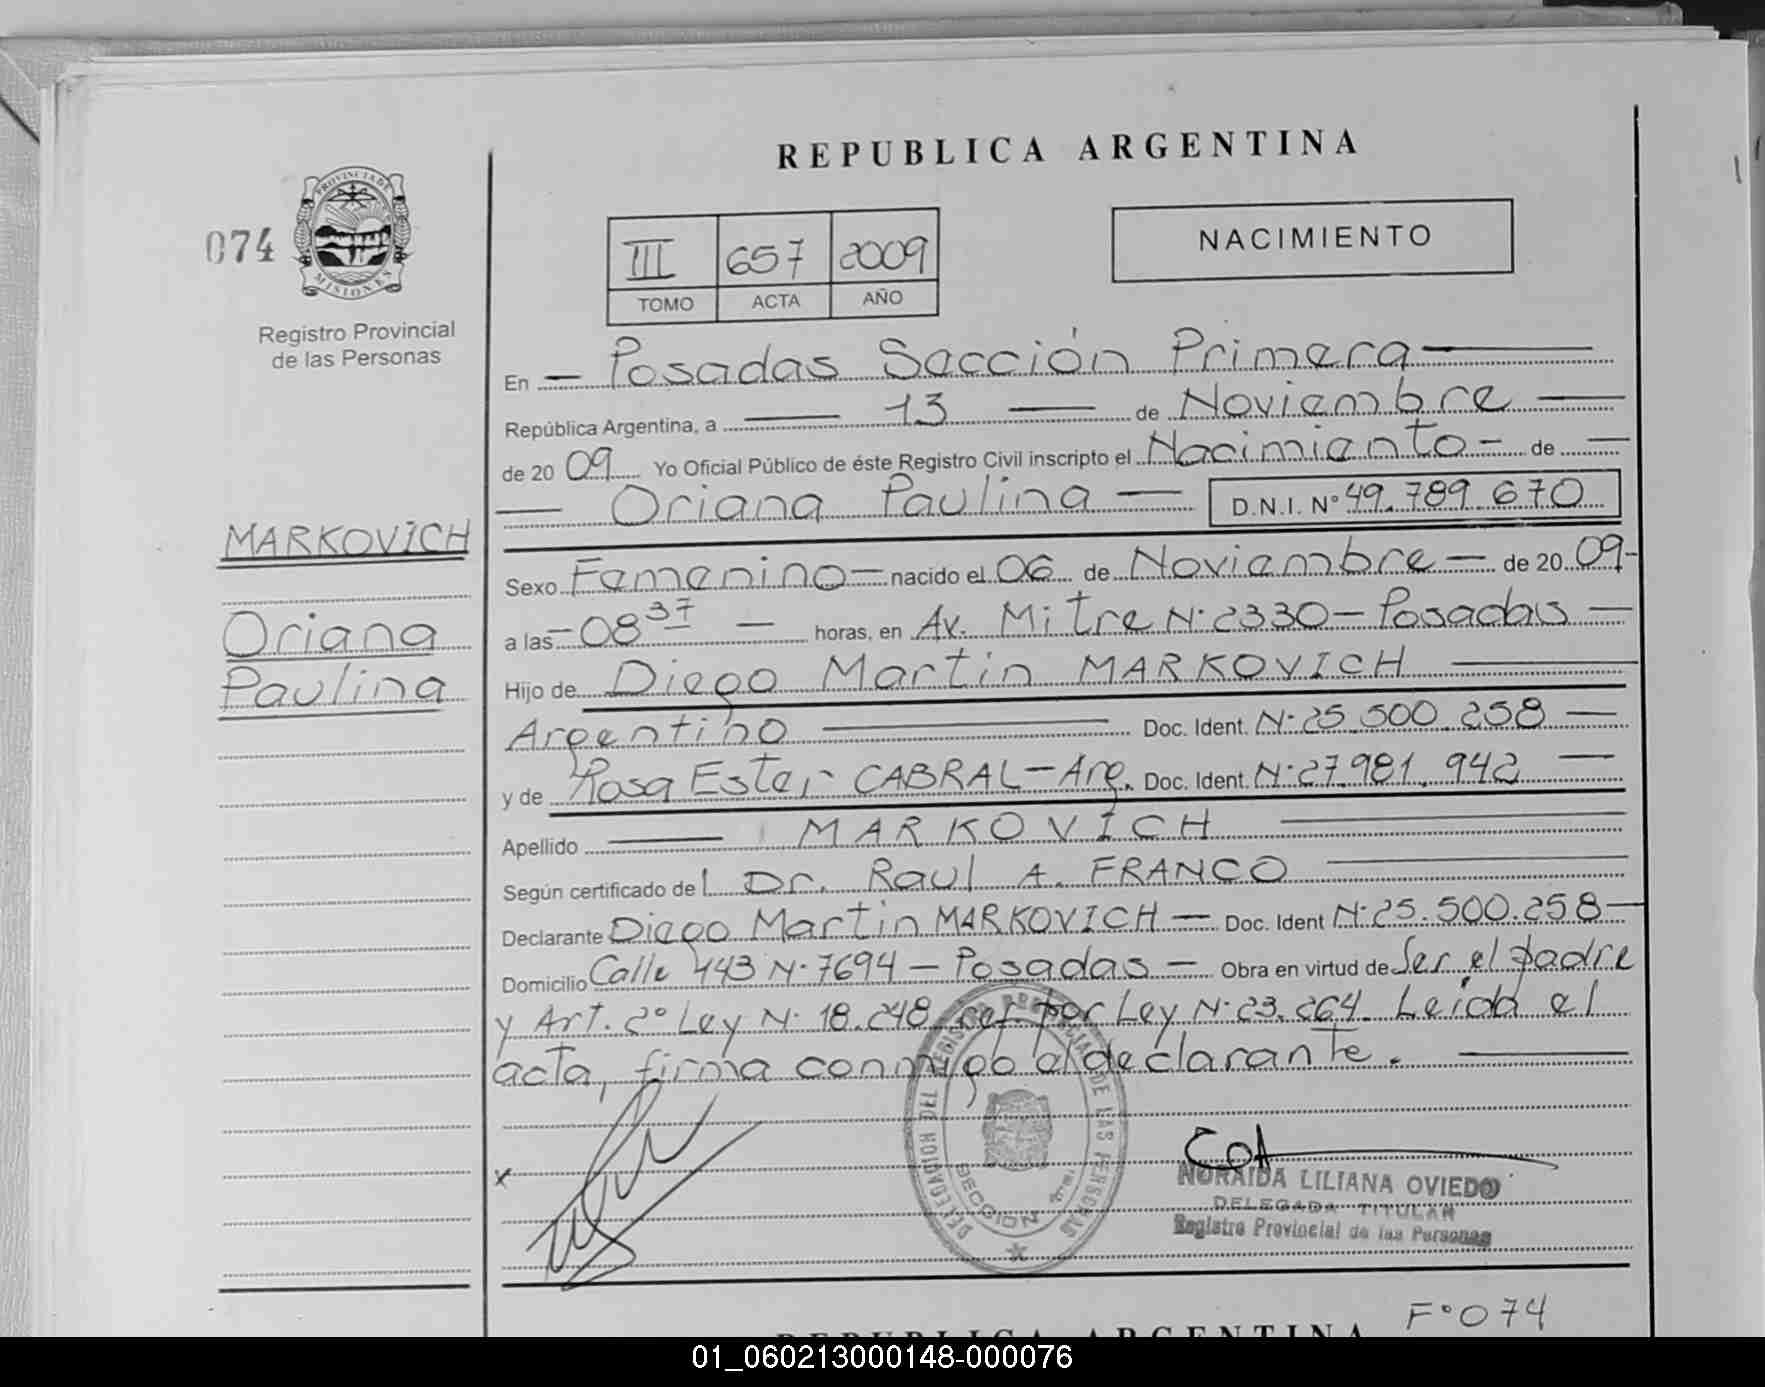 REPUBLICA ARGENTINA
074
PROVINCIA DE
MISIONES
Registro Provincial
de las Personas
III 657 2009
TOMO ACTA AÑO
NACIMIENTO
En — Posadas Sección Primera —
República Argentina, a — 13 — de Noviembre —
de 20 09 Yo Oficial Público de éste Registro Civil inscripto el Nacimiento - de —
— Oriana Paulina — D.N.I. Nº 49.789.670
MARKOVICH
Oriana
Paulina
Sexo Femenino — nacido el 06 de Noviembre — de 20 09 -
a las - 08 37 — horas, en Av. Mitre Nº 2330 - Posadas —
Hijo de Diego Martin MARKOVICH —
Argentino — Doc. Ident. Nº 25.500.258 —
y de Rosa Ester CABRAL - Arg. Doc. Ident. Nº 27.981.942 —
Apellido — MARKOVICH —
Según certificado del Dr. Raul A. FRANCO —
Declarante Diego Martin MARKOVICH — Doc. Ident Nº 25.500.258 —
Domicilio Calle 443 Nº 7694 - Posadas - Obra en virtud de Ser el padre
y Art. 2º Ley Nº 18.248 por Ley Nº 23.264. Leida el
acta, firma conmigo el declarante. —
x
DELEGACION DEL REGISTRO PROVINCIAL DE LAS PERSONAS
SECCION
NORAIDA LILIANA OVIEDO
DELEGADA TITULAR
Registro Provincial de las Personas
Fº 074
REPUBLICA ARGENTINA
01_060213000148-000076